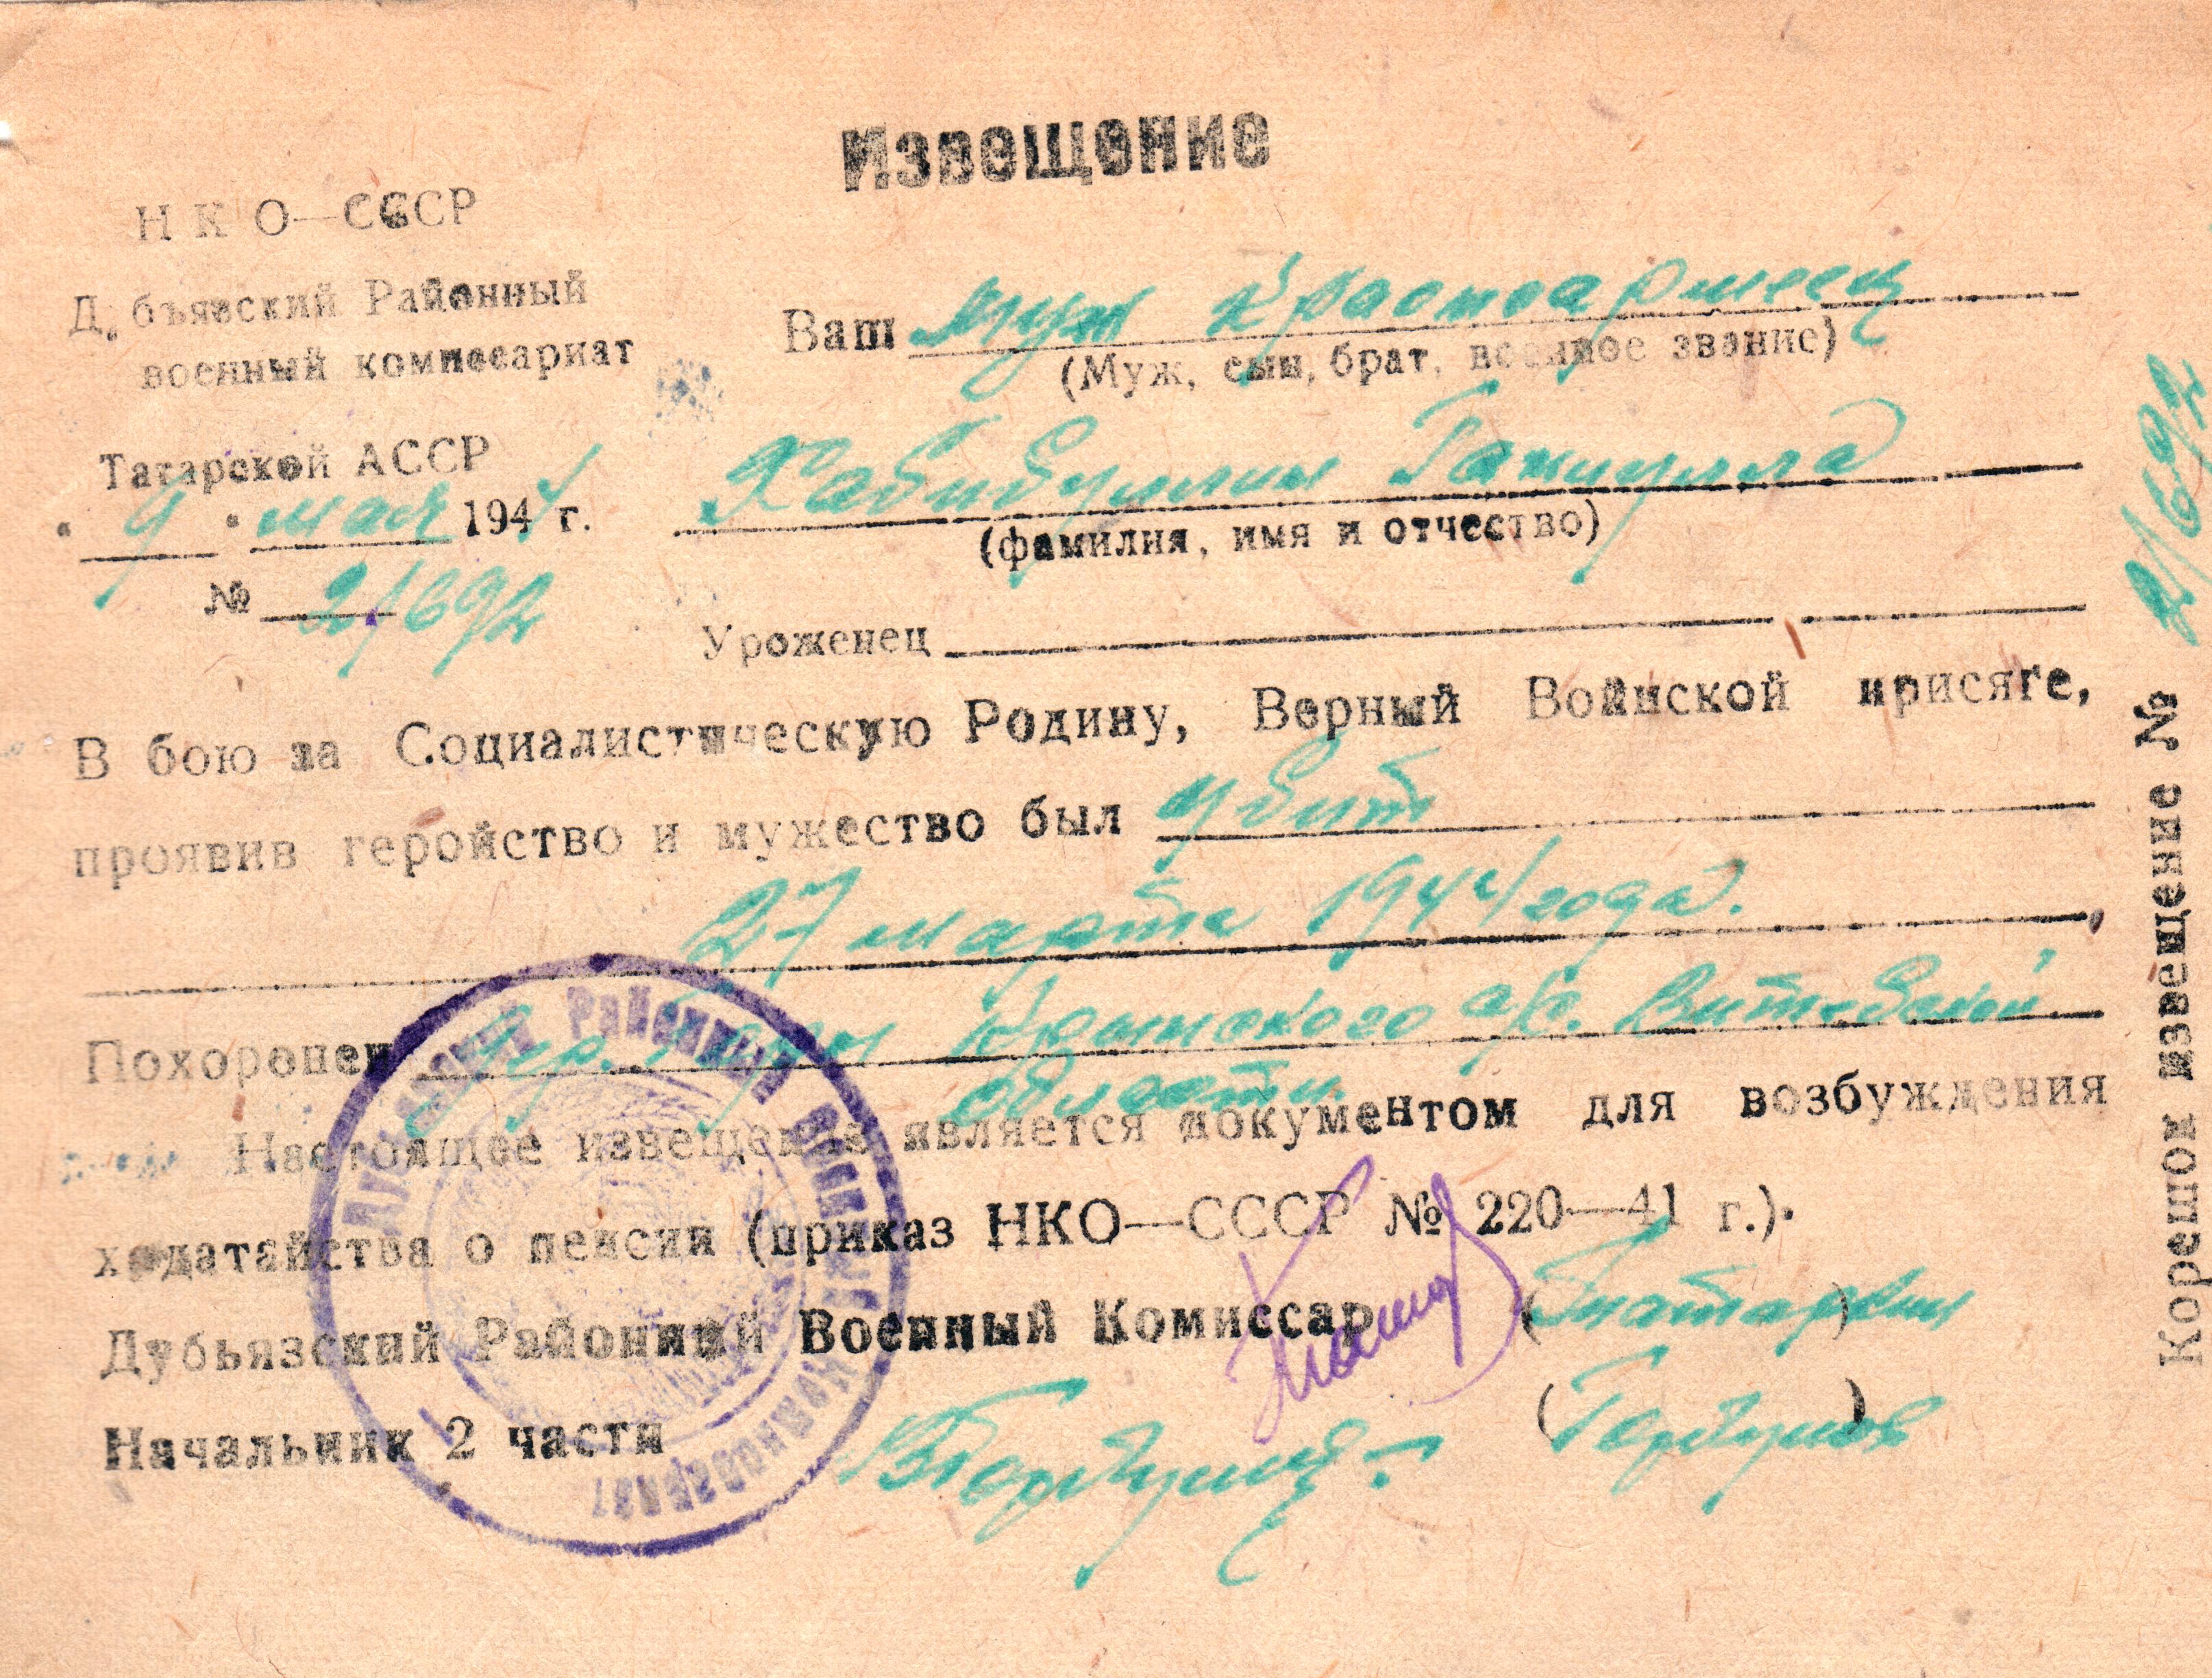 Извещение
НКО—СССР
Д. бъязский Районный
военный комиссариат
Татарской АССР
"9" мая 1944 г.
№ 2/692
Ваш муж Красноармеец
(Муж, сын, брат, военное звание)
Хабибуллин Галиулла
(фамилия, имя и отчество)
Уроженец
В бою за Социалистическую Родину, Верный Воинской присяге,
проявив геройство и мужество был убит
27 марта 1944 года.
Похоронен дер. Крынского с/с. Витебской
области.
Настоящее извещение является документом для возбуждения
ходатайства о пенсии (приказ НКО—СССР № 220—41 г.).
Дубьязский Районный Военный Комиссар
Начальник 2 части Горбунов (Горбунов)
Корешок извещение № 2/692
Дубьязский Районный Военный Комиссариат